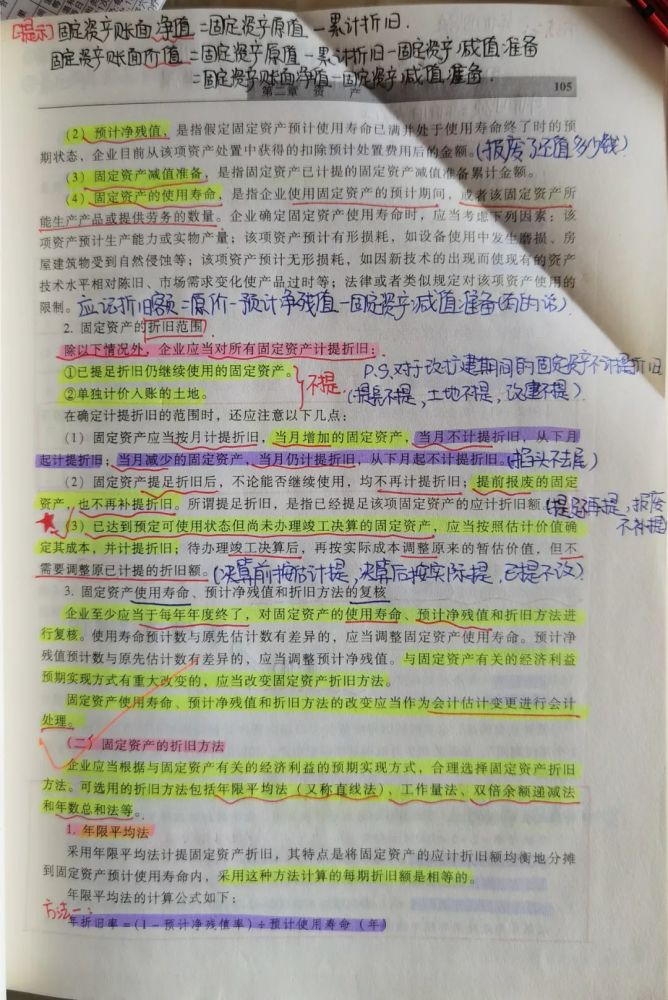 [提示]固定资产账面净值=固定资产原值-累计折旧.
固定资产账面价值=固定资产原值-累计折旧-固定资产减值准备
=固定资产账面净值-固定资产减值准备.
第二章 资 产 105
(2) 预计净残值,是指假定固定资产预计使用寿命已满并处于使用寿命终了时的预
期状态,企业目前从该项资产处置中获得的扣除预计处置费用后的金额。(报废了还值多少钱)
(3) 固定资产减值准备,是指固定资产已计提的固定资产减值准备累计金额。
(4) 固定资产的使用寿命,是指企业使用固定资产的预计期间,或者该固定资产所
能生产产品或提供劳务的数量。企业确定固定资产使用寿命时,应当考虑下列因素:该
项资产预计生产能力或实物产量;该项资产预计有形损耗,如设备使用中发生磨损、房
屋建筑物受到自然侵蚀等;该项资产预计无形损耗,如因新技术的出现而使现有的资产
技术水平相对陈旧、市场需求变化使产品过时等;法律或者类似规定对该项资产使用的
限制。应记折旧额=原价-预计净残值-固定资产减值准备(有的话)
2. 固定资产的折旧范围
除以下情况外,企业应当对所有固定资产计提折旧:
①已提足折旧仍继续使用的固定资产。
②单独计价入账的土地。
不提.
P.S.对于改扩建期间的固定资产不计提折旧
(提足不提,土地不提,改建不提)
在确定计提折旧的范围时,还应注意以下几点:
(1) 固定资产应当按月计提折旧,当月增加的固定资产,当月不计提折旧,从下月
起计提折旧;当月减少的固定资产,当月仍计提折旧,从下月起不计提折旧。(掐头不去尾)
(2) 固定资产提足折旧后,不论能否继续使用,均不再计提折旧;提前报废的固定
资产,也不再补提折旧。所谓提足折旧,是指已经提足该项固定资产的应计折旧额。(提足不再提,报废
不补提)
(3) 已达到预定可使用状态但尚未办理竣工决算的固定资产,应当按照估计价值确
定其成本,并计提折旧;待办理竣工决算后,再按实际成本调整原来的暂估价值,但不
需要调整原已计提的折旧额。(决算前按估计提,决算后按实际提,已提不改)
3. 固定资产使用寿命、预计净残值和折旧方法的复核
企业至少应当于每年年度终了,对固定资产的使用寿命、预计净残值和折旧方法进
行复核。使用寿命预计数与原先估计数有差异的,应当调整固定资产使用寿命。预计净
残值预计数与原先估计数有差异的,应当调整预计净残值。与固定资产有关的经济利益
预期实现方式有重大改变的,应当改变固定资产折旧方法。
固定资产使用寿命、预计净残值和折旧方法的改变应当作为会计估计变更进行会计
处理。
(二)固定资产的折旧方法
企业应当根据与固定资产有关的经济利益的预期实现方式,合理选择固定资产折旧
方法。可选用的折旧方法包括年限平均法(又称直线法)、工作量法、双倍余额递减法
和年数总和法等。
1. 年限平均法
采用年限平均法计提固定资产折旧,其特点是将固定资产的应计折旧额均衡地分摊
到固定资产预计使用寿命内,采用这种方法计算的每期折旧额是相等的。
年限平均法的计算公式如下:
方法一:
年折旧率=(1-预计净残值率)÷预计使用寿命(年)